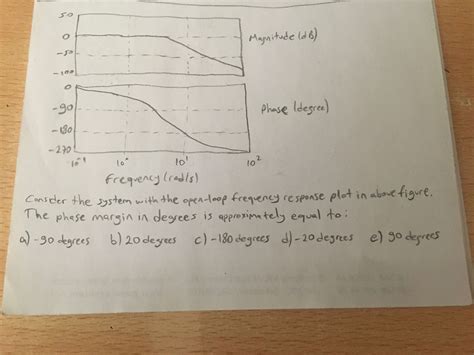 50
0
-50
-100
Magnitude (dB)
0
-90
-180
-270
Phase (degree)
10⁻¹ 10⁰ 10¹ 10²
Frequency (rad/s)
Consider the system with the open-loop frequency response plot in above figure.
The phase margin in degrees is approximately equal to:
a) -90 degrees b) 20 degrees c) -180 degrees d) -20 degrees e) 90 degrees